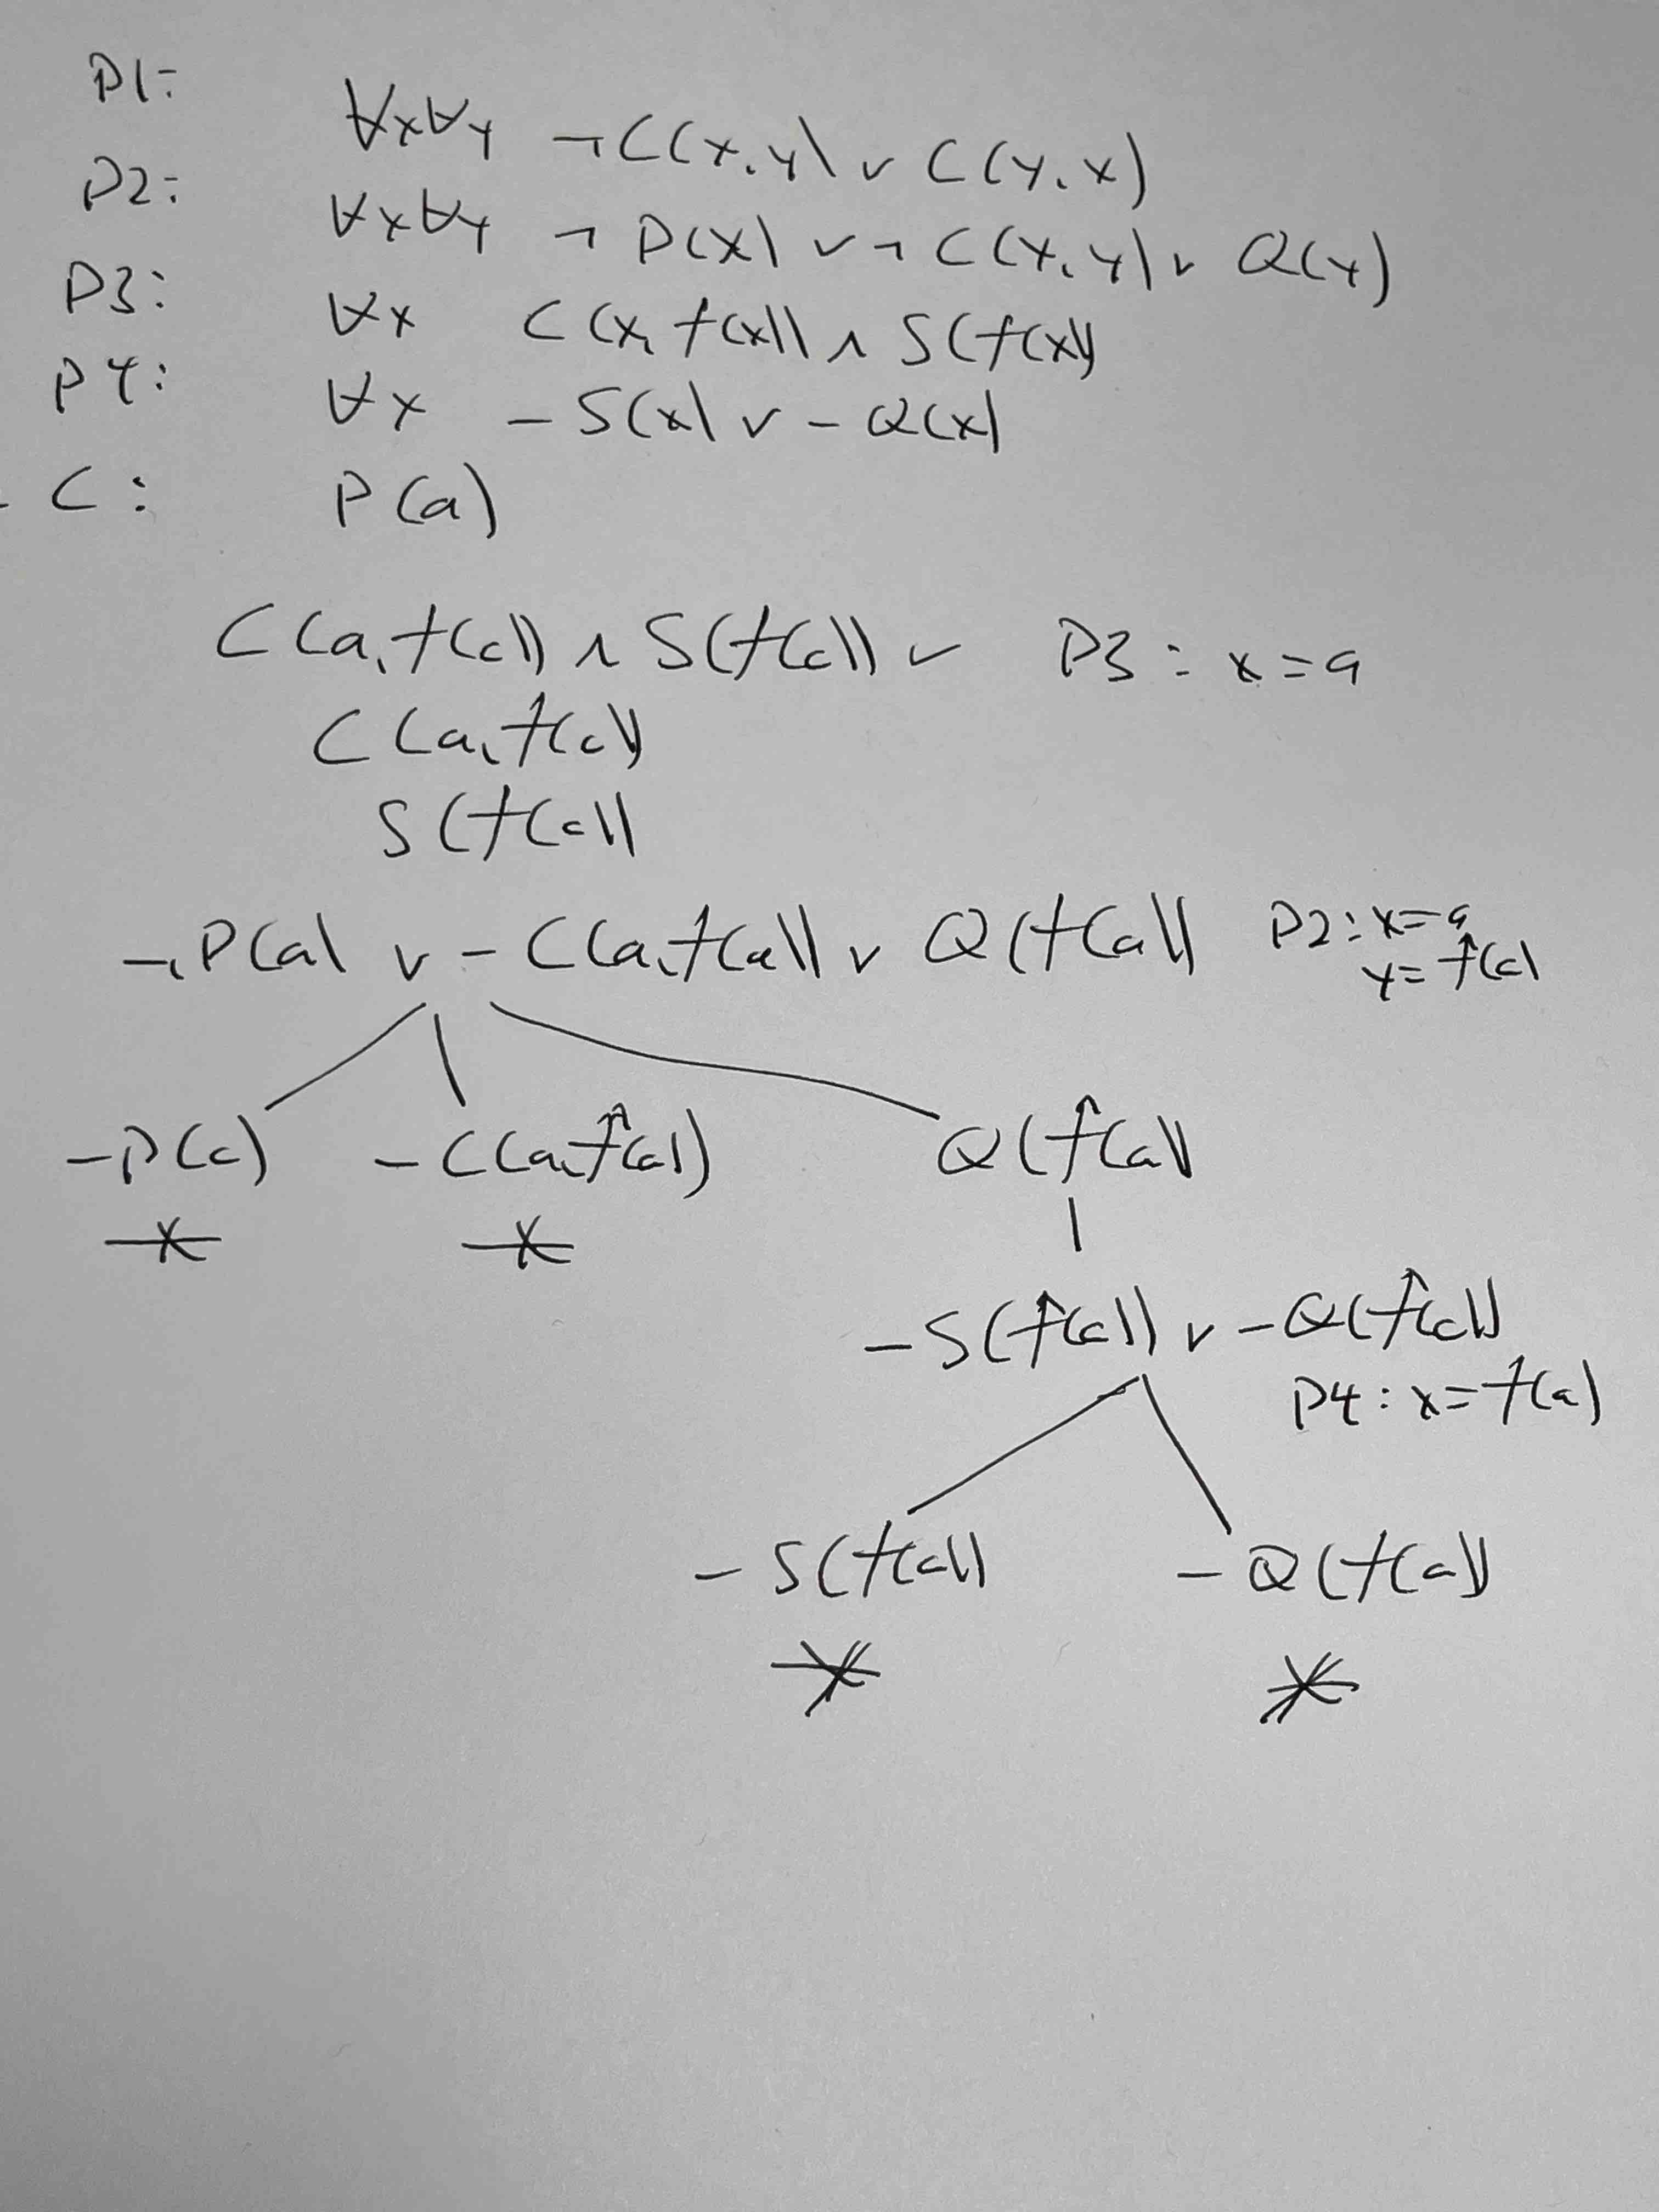 P1: ∀x∀y ¬C(x,y) ∨ C(y,x)
P2: ∀x∀y ¬P(x) ∨ ¬C(x,y) ∨ Q(y)
P3: ∀x C(x,f(x)) ∧ S(f(x))
P4: ∀x ¬S(x) ∨ ¬Q(x)
¬C: P(a)
C(a,f(a)) ∧ S(f(a)) ✓ P3: x=a
C(a,f(a))
S(f(a))
¬P(a) ∨ ¬C(a,f(a)) ∨ Q(f(a)) P2: x=a
y=f(a)
¬P(a) ¬C(a,f(a)) Q(f(a))
¬S(f(a)) ∨ ¬Q(f(a))
P4: x=f(a)
¬S(f(a)) ¬Q(f(a))